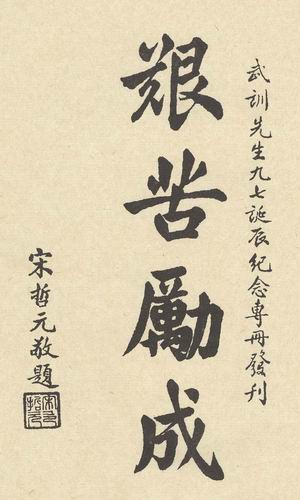 武訓先生九七誕辰紀念專冊發刊
艱苦勵成
宋哲元敬題
宋哲元印